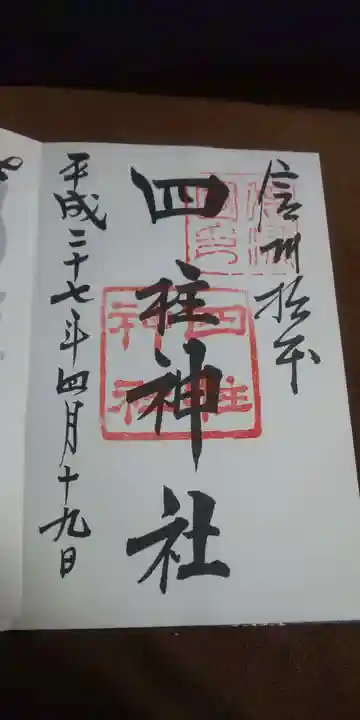 信州松本
四柱神社
平成二十七年四月十九日
四柱
神社